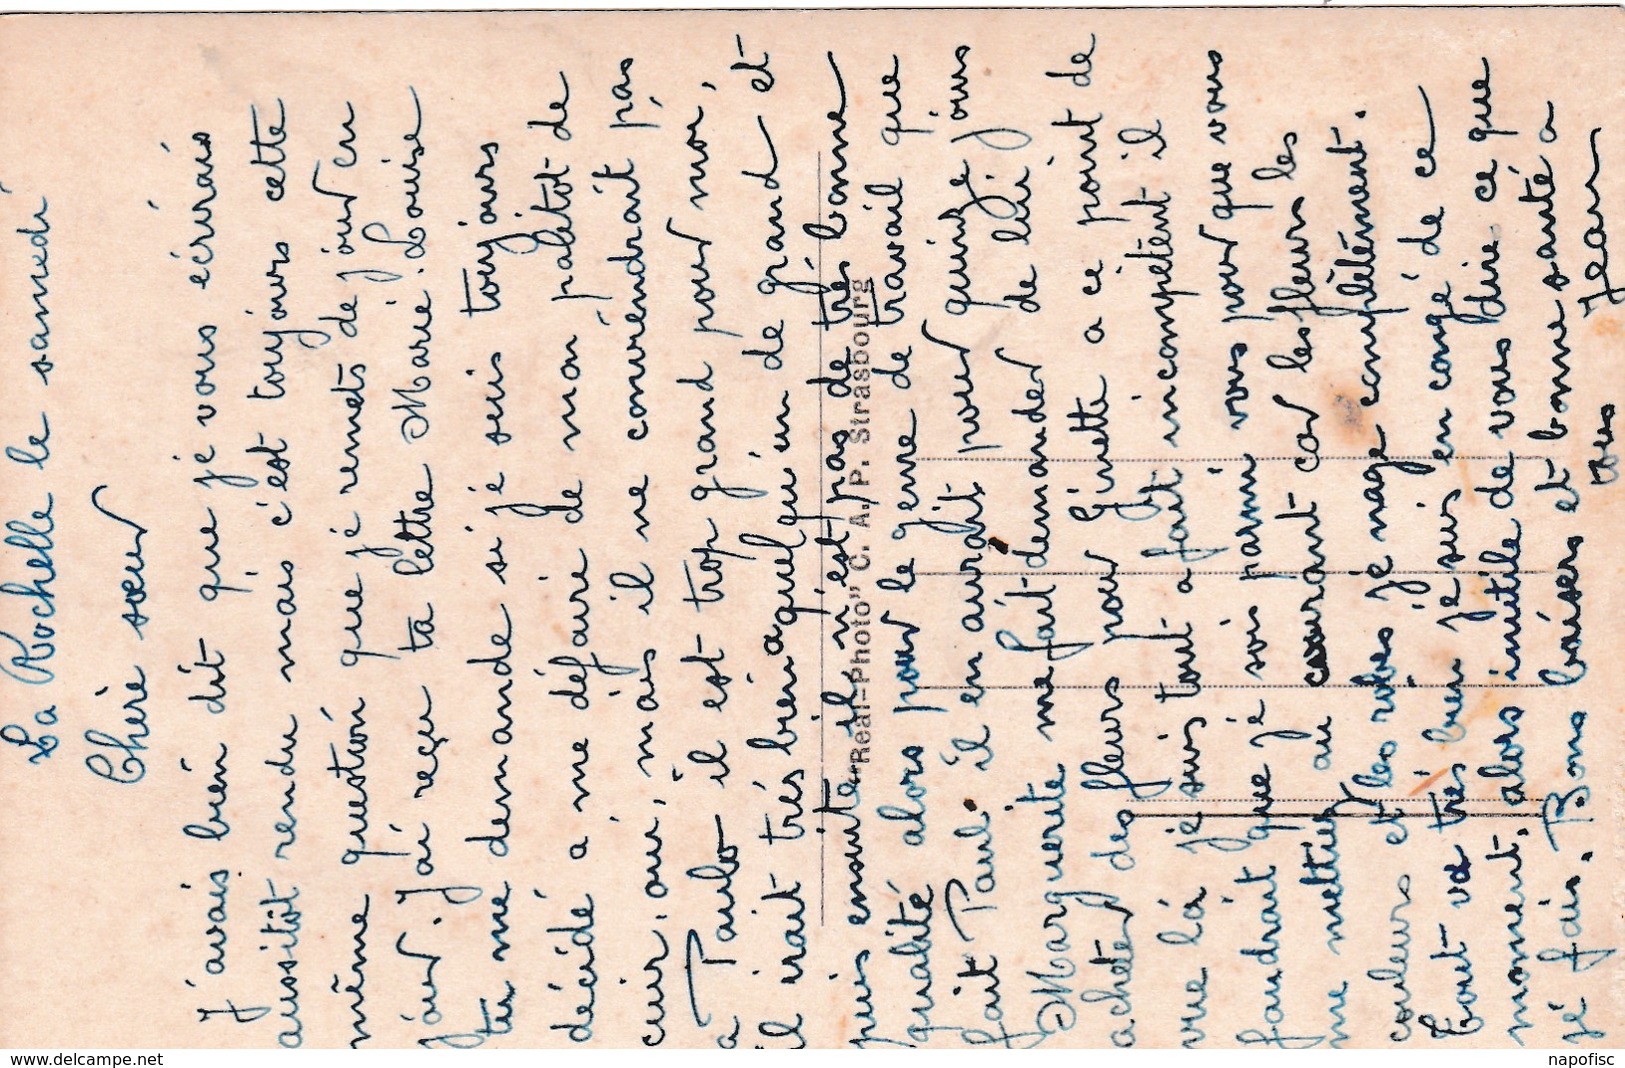 La Rochelle le samedi
Chère sœur
J'avais bien dit que je vous écrirais
aussitôt rendu mais c'est toujours cette
même question que je remets de jour en
jour. J'ai reçu ta lettre Marie-Louise
tu me demande si je suis toujours
décidé a me défaire de mon palitot de
cuir, oui, mais il ne conviendrait pas
a Paulo il est trop grand pour moi,
il irait très bien a quelqu'un de grand et
puis ensuite il n'est pas de très bonne
qualité alors pour le genre de travail que
fait Paul il en aurait pour quinze jours
Marguerite me fait demander de lui
acheter des fleurs pour Ginette a ce point de
vue là je suis tout a fait incompétent il
faudrait que je sois parmi vous pour que vous
me mettiez au courant car les fleurs les
couleurs et les robes je nage complètement.
Tout va très bien je suis en congé de ce
moment, alors inutile de vous dire ce que
je fais. Bons baisers et bonne santé a
tous Jean
"Real-Photo" C. A. P. Strasbourg
www.delcampe.net
napofisc